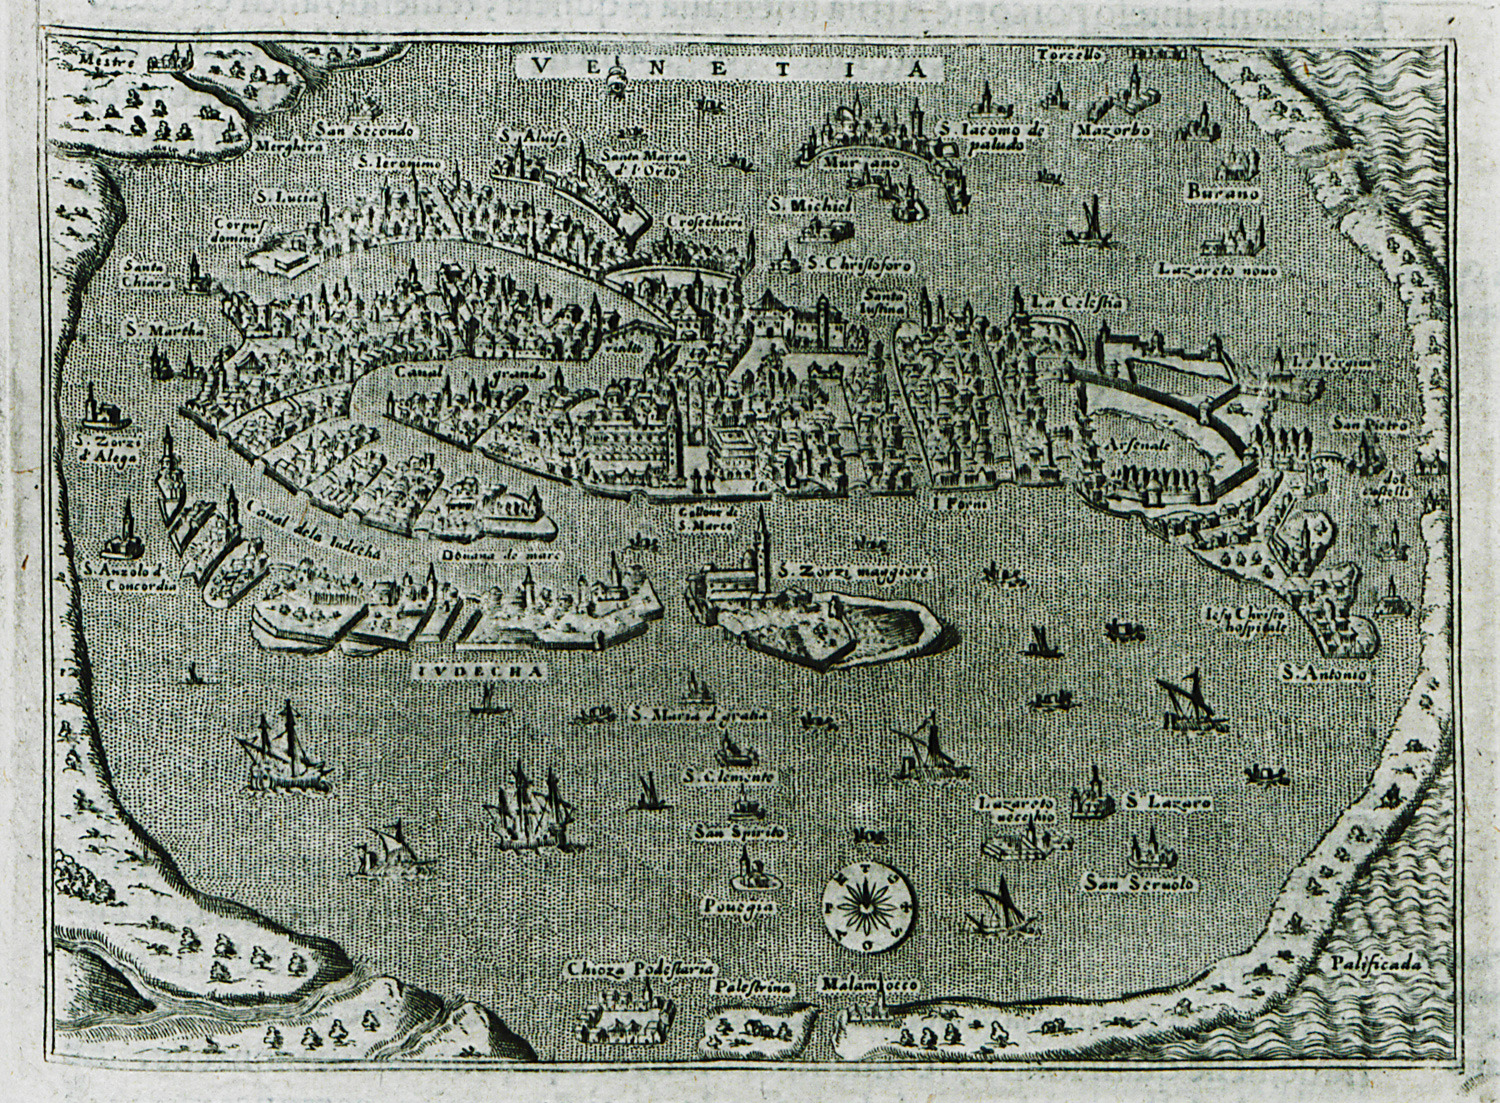 VENETIA
Torcello
Mestre
San Secondo
Merghera
S. Aluise
S. Ieronimo
Santa Maria
d'l'Orto
S. Iacomo de
paludo
Mazorbo
Murano
Burano
S. Lucia
Corpus
domini
Crosechieri
S. Michiel
S. Christoforo
Lazareto nouo
Santa
Chiara
Santa
Iustina
La Celestia
S. Martha
Rialto
Canal grando
Le Vergini
S. Zorzi
d'Alega
Arsenale
San Pietro
doi
castelli
Canal dela Iudecha
Douana de mare
S. Marco
I Forni
S. Anzolo d'
Concordia
S. Zorzi maggiore
Iesu Christo
hospitale
IVDECHA
S. Antonio
S. Maria d'gratia
S. Clemente
San Spirito
Lazareto
uecchio
S. Lazaro
San Seruolo
Pouegia
Chioza Podestaria
Palestrina
Malamocco
Palificada